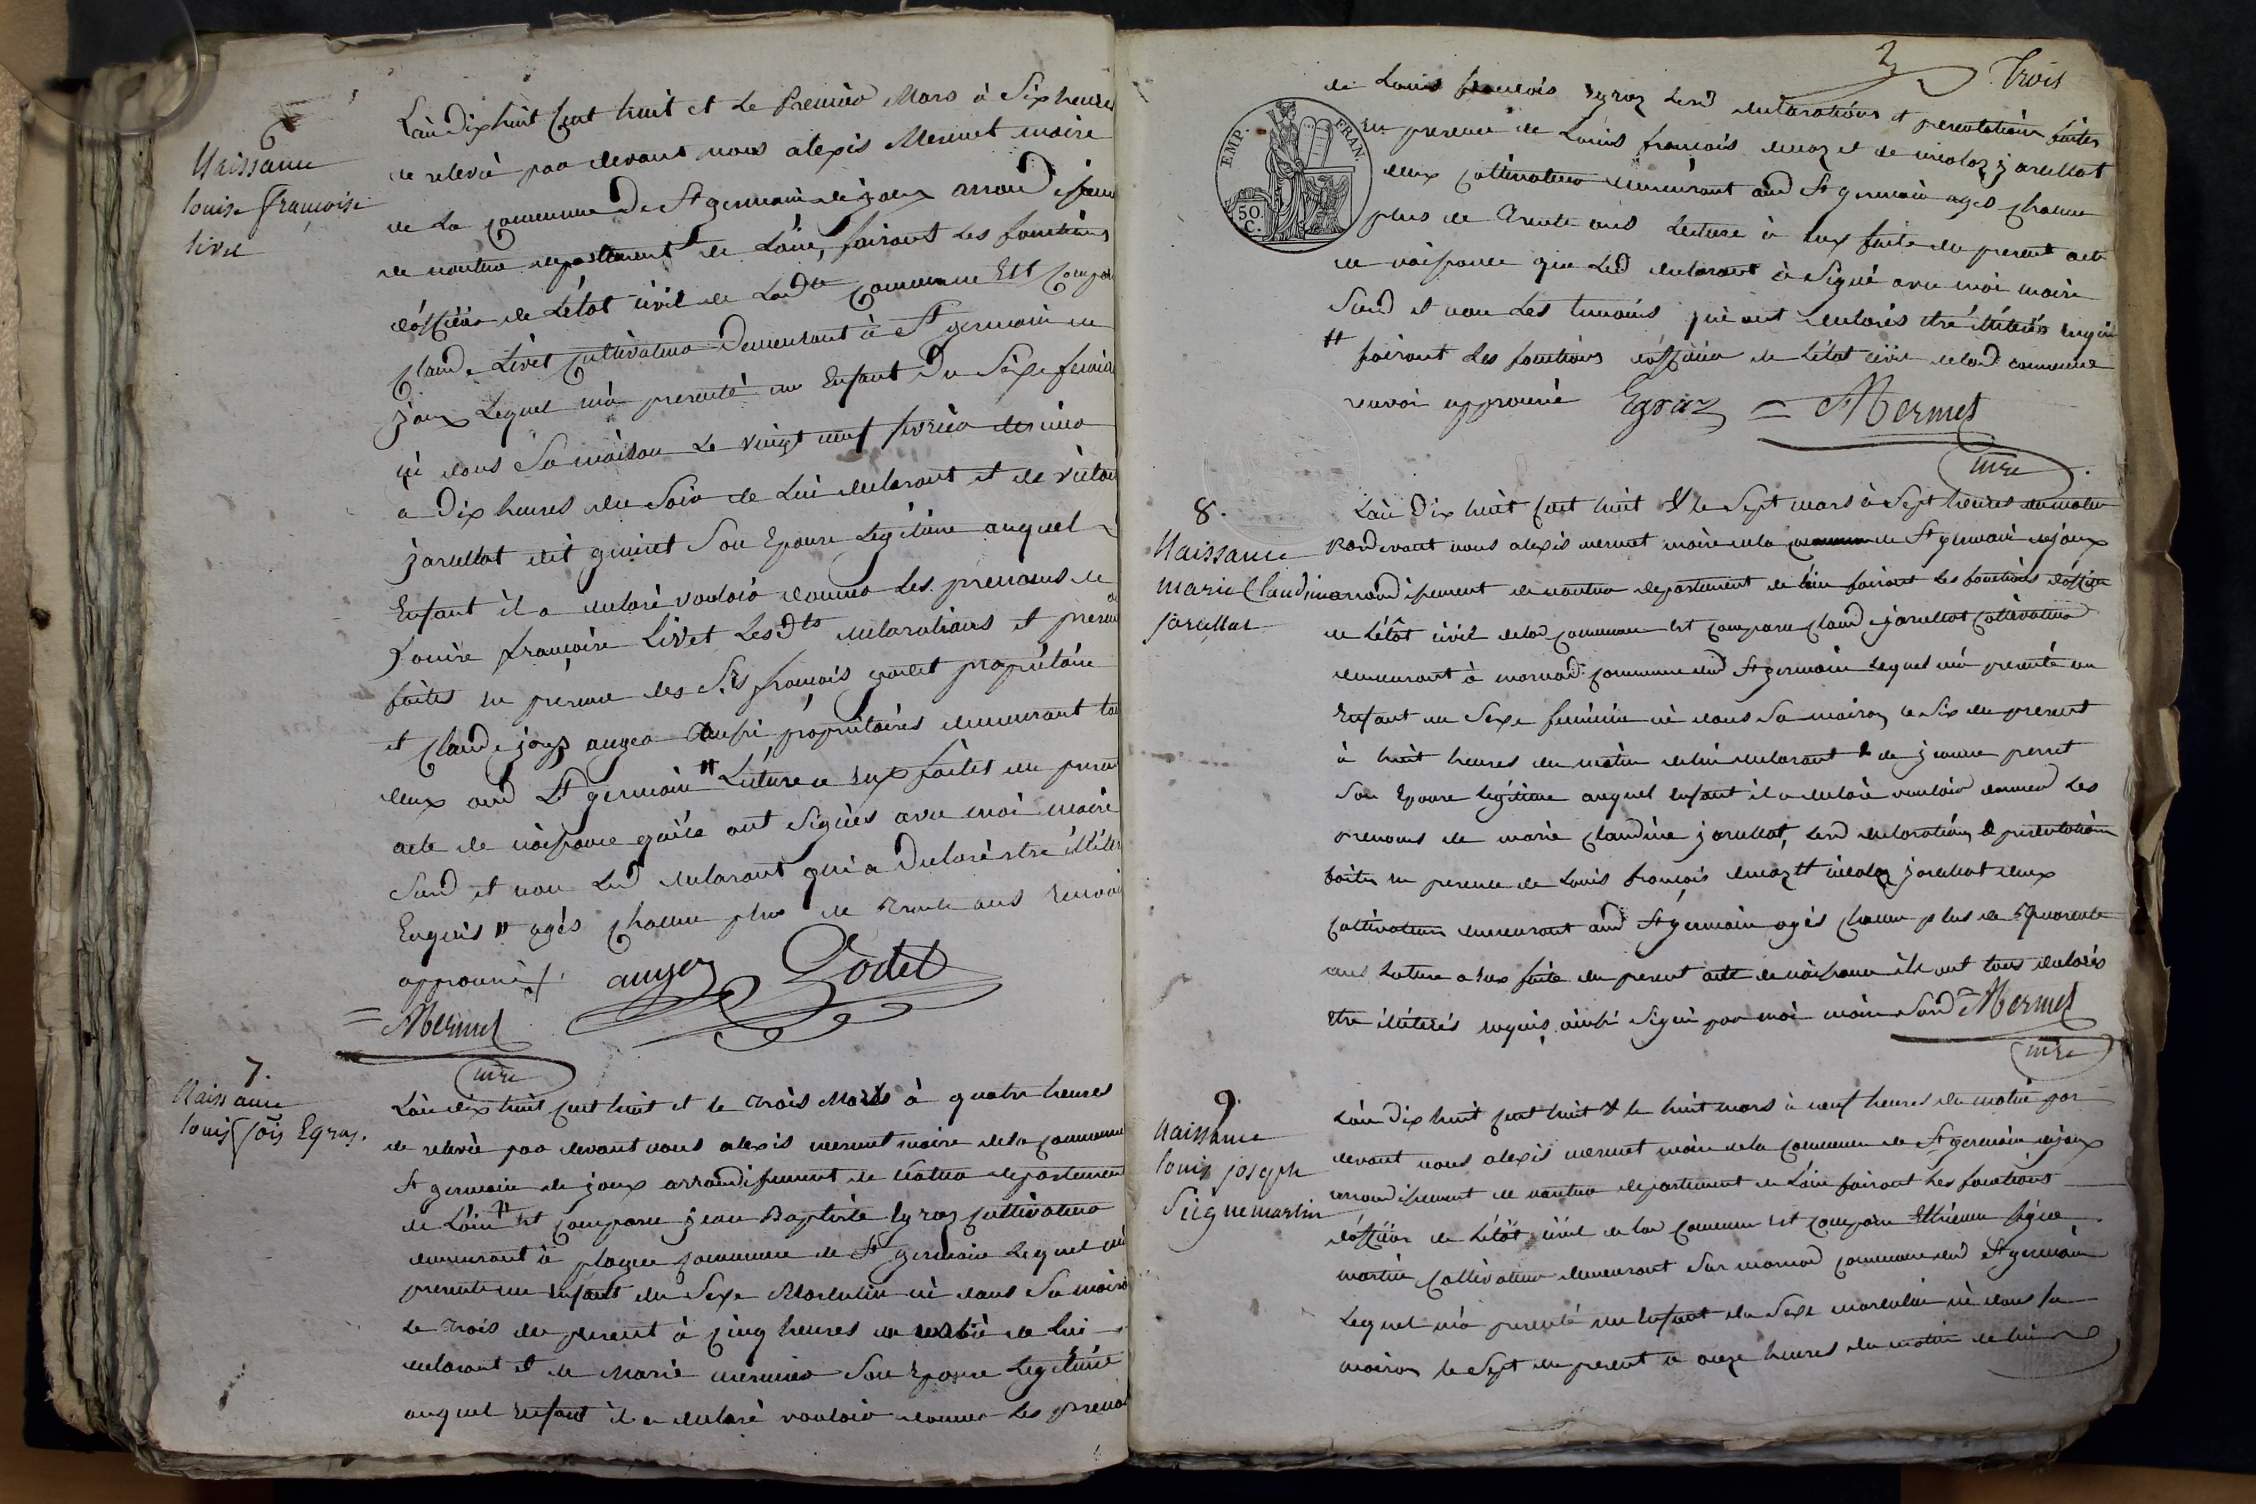 6
Naissance
louise françoise
livet
L'an dix huit cent huit et le Premier Mars à Six heures
de relevée par devant nous alexis Mermet maire
de la commune De St germain de joux arrondissem
de nantua departement de L'ain, faisant les fonctions
d'officier de L'état civil de Ladte commune Est compar
Claude Livet Cultivateur Demeurant à St germain de
joux Lequel m'a presenté un Enfant Du Sexe feminin
né dans Sa maison Le vingt neuf fevrier dernier
a Dix heures du Soir de Lui declarant et de
jarullat dit Son Epouse Legitime auquel
Enfant il a declaré vouloir donner Les prenoms de
Louise françoise Livet Lesdtes declarations et presen
faites en presence des Srs françois godet propriétaire
et Claude joseph auger aussi propriétaires demeurant tou
deux aud St germain # Lecture a Eux faites du present
acte de naissance qu'ils ont Signés avec moi maire
Susd et non Led declarant qui a Declaré etre illiteré
Enquis # agés chacun plus de Trente ans renvoi
approuvé /. auger Godet
= AMermet
mre
7.
Naissance
louis fois Egraz.
L'an dix huit cent huit et le trois Mars à quatre heures
de relevée par devant nous alexis mermet maire de la commune
St germain de joux arrondissement de Nantua departement
de L'ain # Est comparu jean Baptiste Egraz Cultivateur
demeurant à plagne commune de St germain Lequel m'a
presenté un Enfant du Sexe Masculin né dans Sa maison
Le trois du present à cinq heures du matin de Lui
declarant et de Marie mermier Son Epouse Legitime
auquel Enfant il a declaré vouloir donner Les prenoms
3 Trois
EMP. FRAN.
50. C.
de Louis françois Egraz Lesd declarations et presentation faites
En presence de Louis françois et de nicolaz jarullat
deux Cultivateurs demeurant aud St germain agés chacun
plus de Trente ans Lecture à Eux faite du present acte
de naissance que Led declarant à Signé avec moi maire
Susd et non Les temoins qui ont declarés etre illiterés Enquis
# faisant Les fonctions d'officier de L'état civil de lad commune
renvoi approuvé Egraz = AMermet
mre
8.
Naissance
marie Claudine
jarullat
L'an Dix huit cent huit & le Sept mars à Sept heures du matin
Pardevant nous alexis mermet maire de la commune de St germain de joux
arrondissement de nantua departement de L'ain faisant Les fonctions d'officier
de L'état civil de lad commune Est comparu Claude jarullat Cultivateur
demeurant à marnod commune dud St germain Lequel m'a presenté un
Enfant du Sexe feminin né dans Sa maison le Six du present
à huit heures du matin de lui declarant & de jeanne perret
Son Epouse Legitime auquel Enfant il a declaré vouloir donner Les
prenoms de marie Claudine jarullat, Lesd declaration & presentation
faites en presence de Louis françois et nicolaz jarullat deux
Cultivateurs demeurant aud St germain agés chacun plus de Quarante
ans Lecture a Eux faite du present acte de naissance ils ont tous declarés
etre illiterés enquis ainsi Signé par moi maire Susd = AMermet
mre
9.
Naissance
louis joseph
Seignemartin
L'an dix huit cent huit & le huit mars à neuf heures du matin par
devant nous alexis mermet maire de la commune de St germain de joux
arrondissement de nantua departement de L'ain faisant Les fonctions
d'officier de L'état civil de lad commune Est comparu
martin Cultivateur demeurant Sur marnod commune dud St germain
Lequel m'a presenté un Enfant du Sexe masculin né dans sa
maison le Sept du present a onze heures du matin de lui